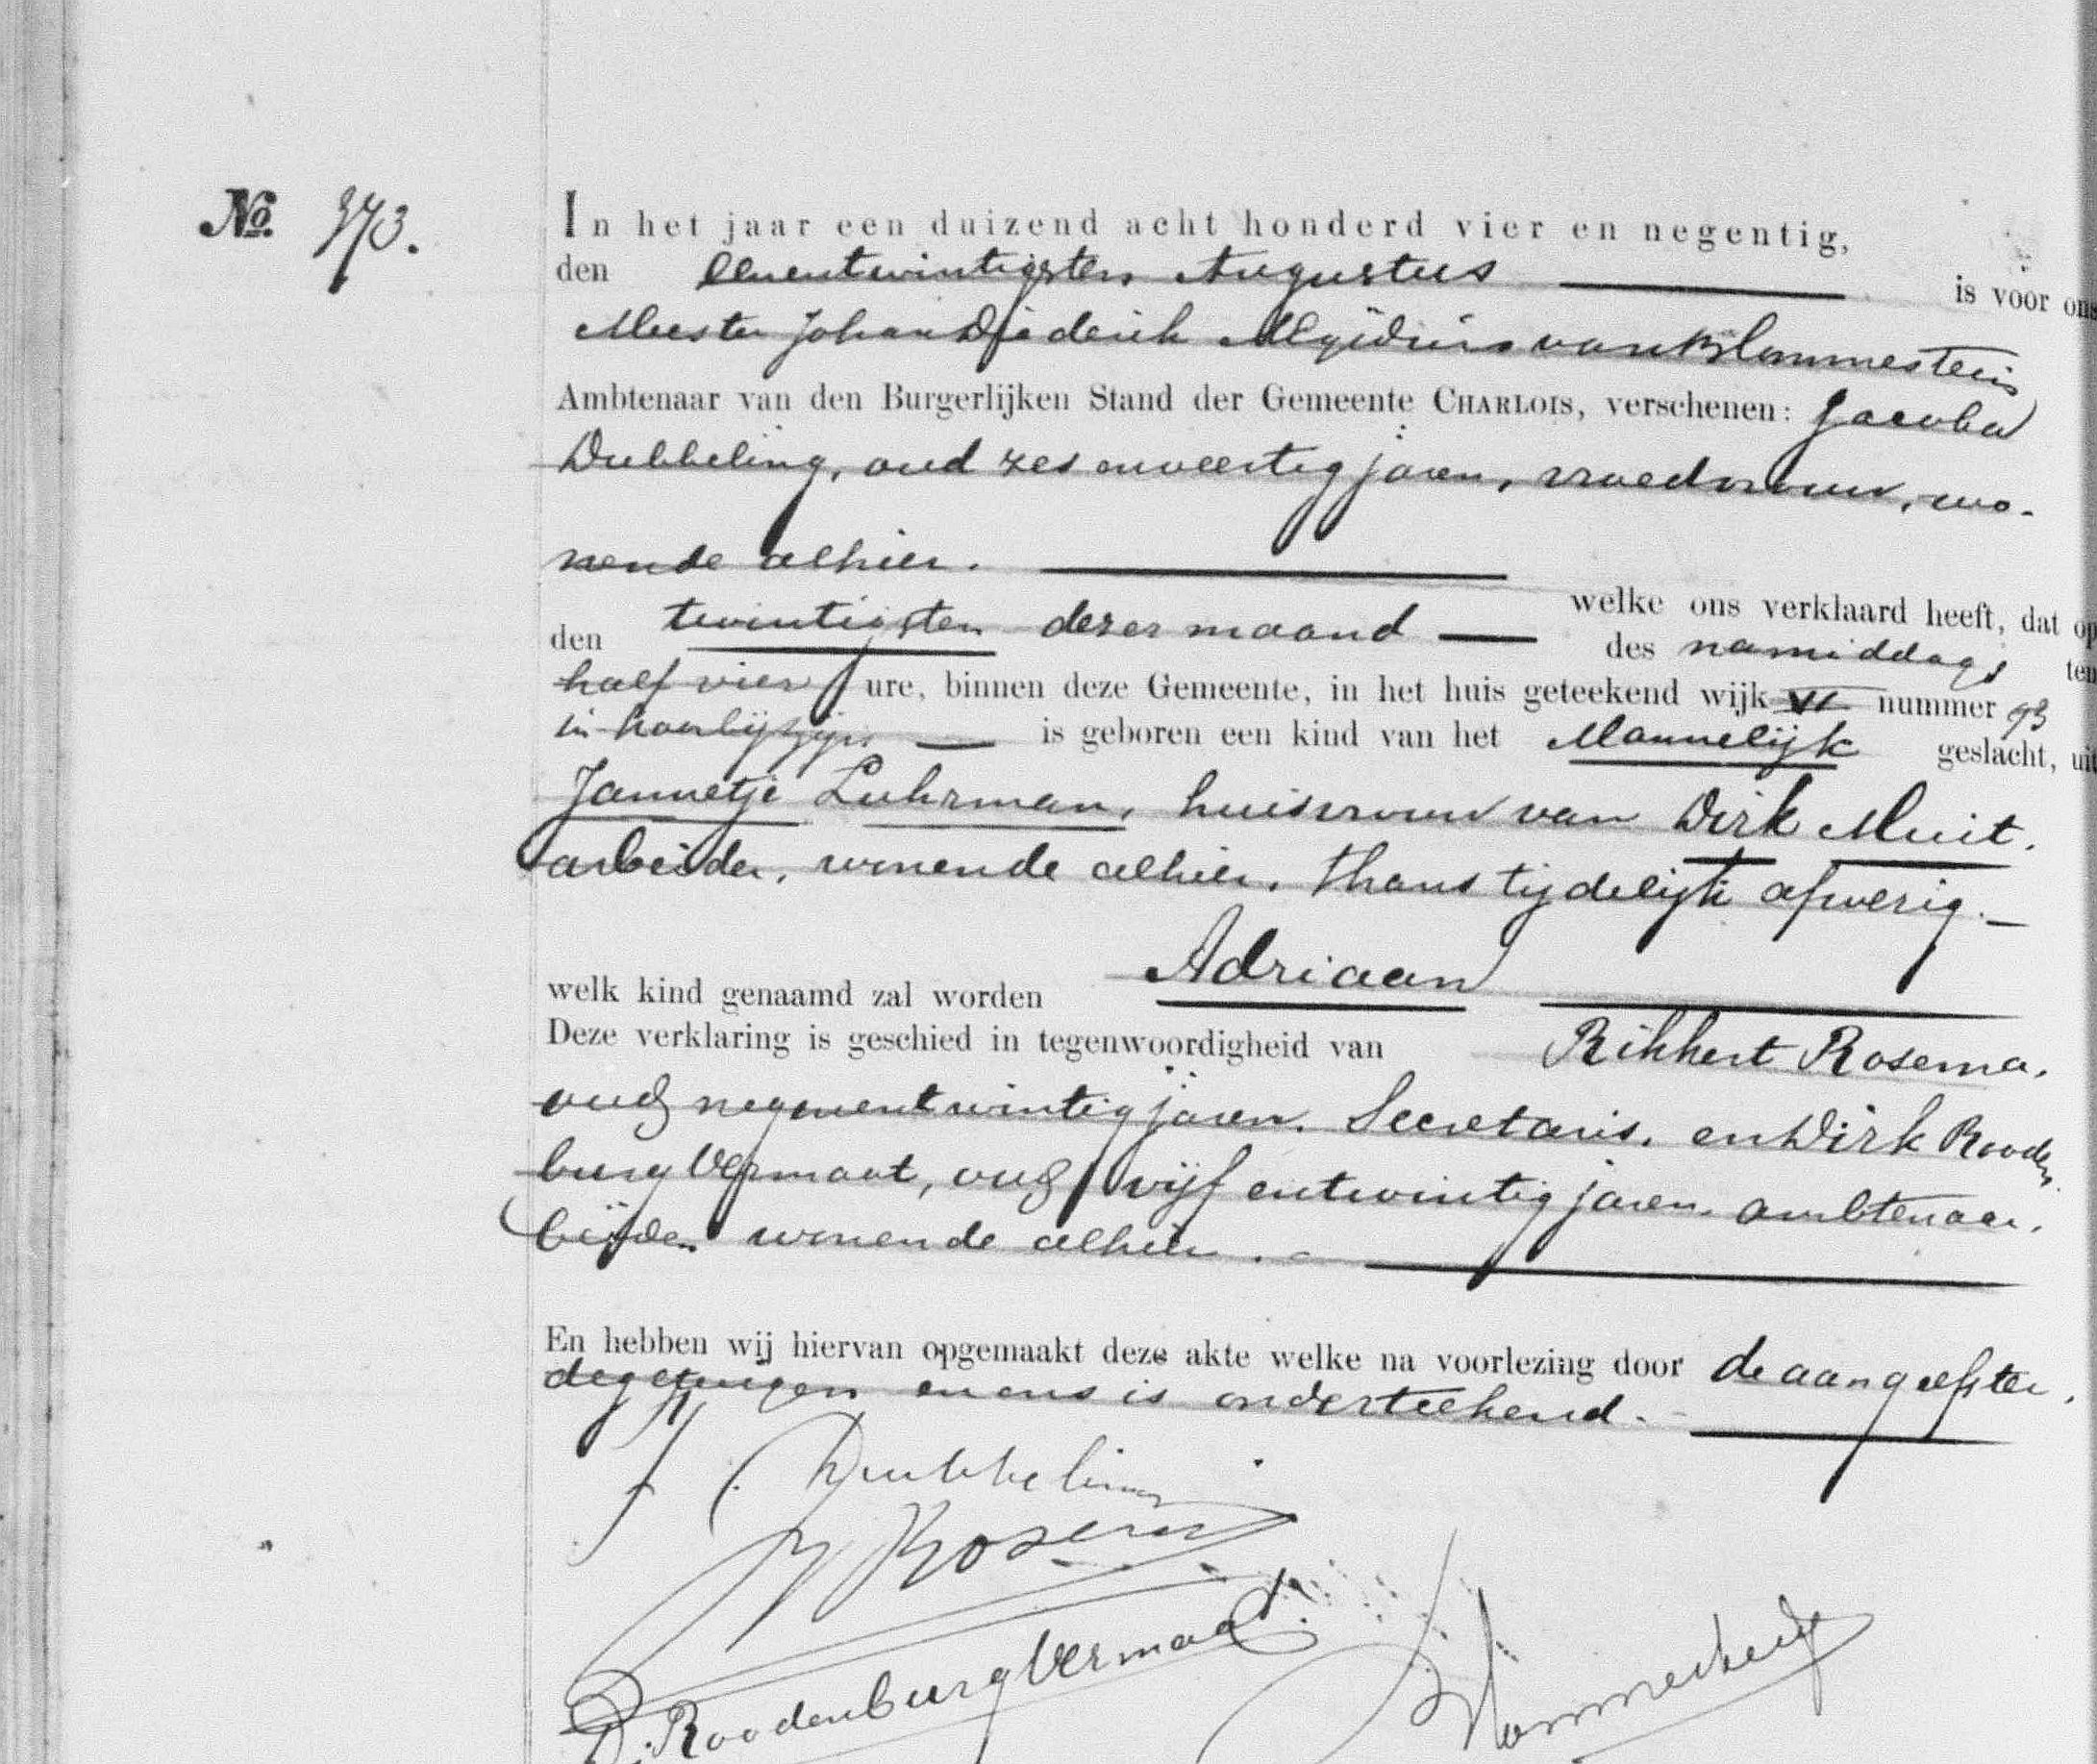 No. 373.
In het jaar een duizend acht honderd vier en negentig,
den eenentwintigsten Augustus is voor ons
Meester Johan Diederik Aegidius van Blommestein
Ambtenaar van den Burgerlijken Stand der Gemeente CHARLOIS, verschenen: Jacoba
Dubbeling, oud zes en veertig jaren, vroedvrouw, wo-
nende alhier.
welke ons verklaard heeft, dat op
den twintigsten dezer maand des namiddags ten
half vier ure, binnen deze Gemeente, in het huis geteekend wijk VI nummer 93
in haar bijzijn is geboren een kind van het Mannelijk geslacht, uit
Jannetje Luhrman, huisvrouw van Dirk Muit.
arbeider, wonende alhier, thans tijdelijk afwezig.
welk kind genaamd zal worden Adriaan
Deze verklaring is geschied in tegenwoordigheid van Rikkert Rosema,
oud negenentwintig jaren, Secretaris, en Dirk Rooden
burg Vermaat, oud vijf entwintig jaren, ambtenaar,
beiden wonende alhier.
En hebben wij hiervan opgemaakt deze akte welke na voorlezing door de aangeefster,
de getuigen en ons is onderteekend.
J. Dubbeling
R Rosema
D. Roodenburg Vermaat